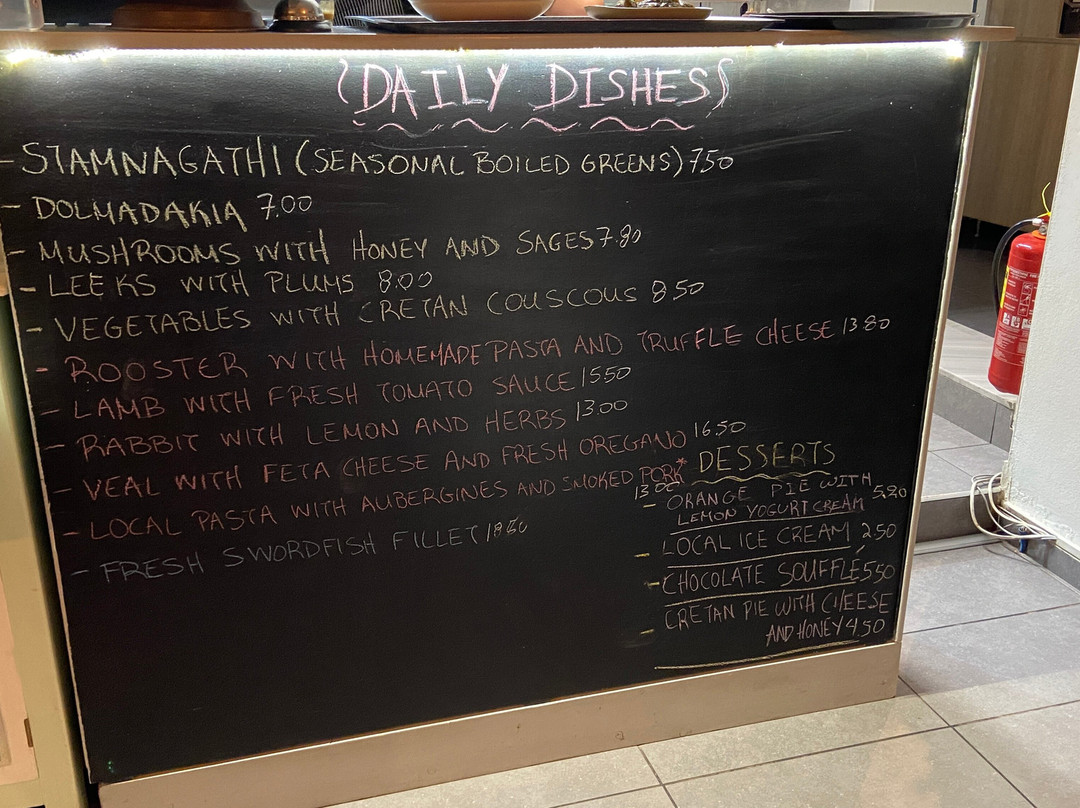 (DAILY DISHES)
- STAMNAGATHI (SEASONAL BOILED GREENS) 7.50
- DOLMADAKIA 7.00
- MUSHROOMS WITH HONEY AND SAGES 7.80
- LEEKS WITH PLUMS 8.00
- VEGETABLES WITH CRETAN COUSCOUS 8.50
- ROOSTER WITH HOMEMADE PASTA AND TRUFFLE CHEESE 13.80
- LAMB WITH FRESH TOMATO SAUCE 15.50
- RABBIT WITH LEMON AND HERBS 13.00
- VEAL WITH FETA CHEESE AND FRESH OREGANO 16.50
- LOCAL PASTA WITH AUBERGINES AND SMOKED PORK*
13.00
- FRESH SWORDFISH FILLET 18.50
DESSERTS
- ORANGE PIE WITH
LEMON YOGURT CREAM 5.20
- LOCAL ICE CREAM 2.50
- CHOCOLATE SOUFFLÉ 5.50
- CRETAN PIE WITH CHEESE
AND HONEY 4.50